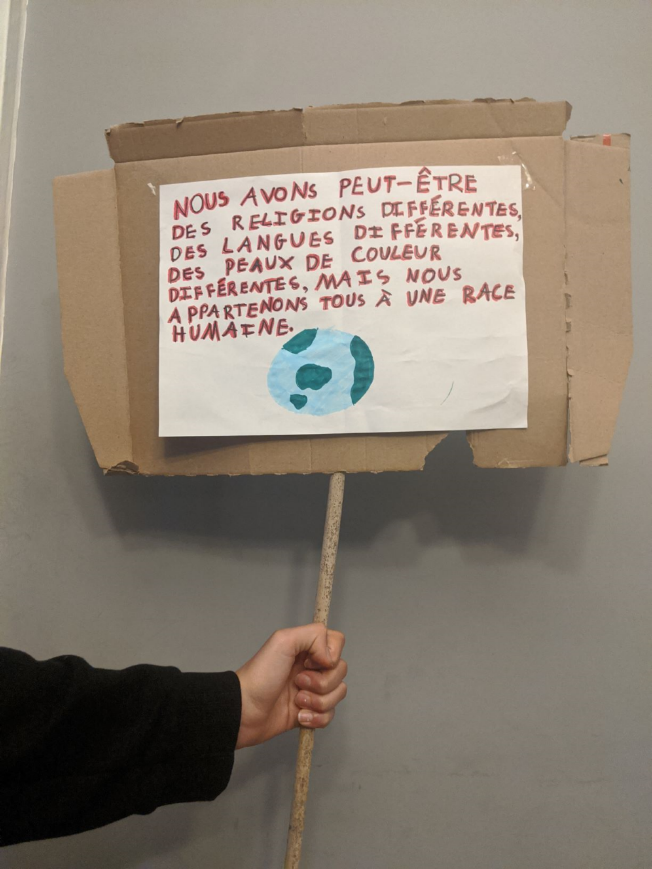 NOUS AVONS PEUT-ÊTRE
DES RELIGIONS DIFFÉRENTES,
DES LANGUES DIFFÉRENTES,
DES PEAUX DE COULEUR
DIFFÉRENTES, MAIS NOUS
APPARTENONS TOUS À UNE RACE
HUMAINE.